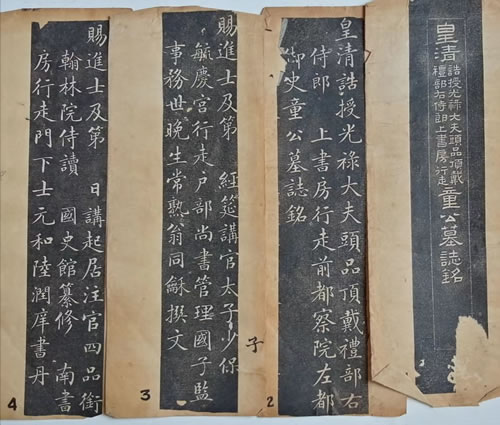 皇清
誥授光祿大夫頭品頂戴
禮部右侍郎上書房行走
童公墓誌銘
皇清誥授光祿大夫頭品頂戴禮部右
侍郎 上書房行走前都察院左都
御史童公墓誌銘
2
子
賜進士及第 經筵講官太子少保
毓慶宮行走戶部尚書管理國子監
事務世晚生常熟翁同龢撰文
3
賜進士及第 日講起居注官四品銜
翰林院侍讀 國史館纂修 南書
房行走門下士元和陸潤庠書丹
4